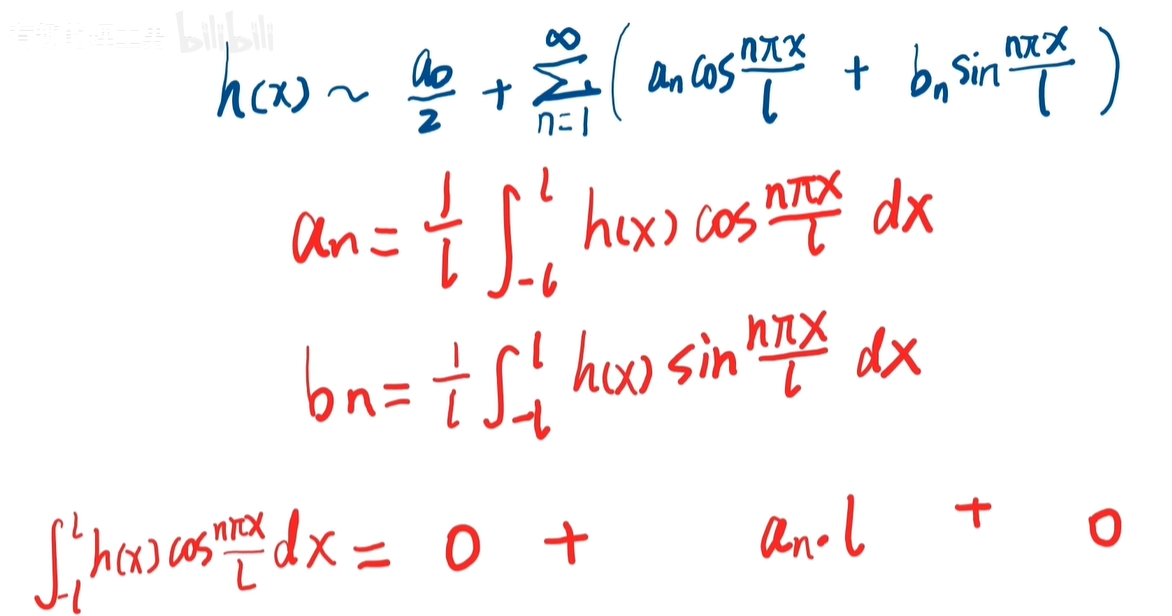 bilibili
h(x) ~ a₀/2 + ∑_{n=1}^{∞} ( aₙ cos nπx/l + bₙ sin nπx/l )
aₙ = 1/l ∫_{-l}^{l} h(x) cos nπx/l dx
bₙ = 1/l ∫_{-l}^{l} h(x) sin nπx/l dx
∫_{-l}^{l} h(x) cos nπx/l dx = 0 + aₙ·l + 0